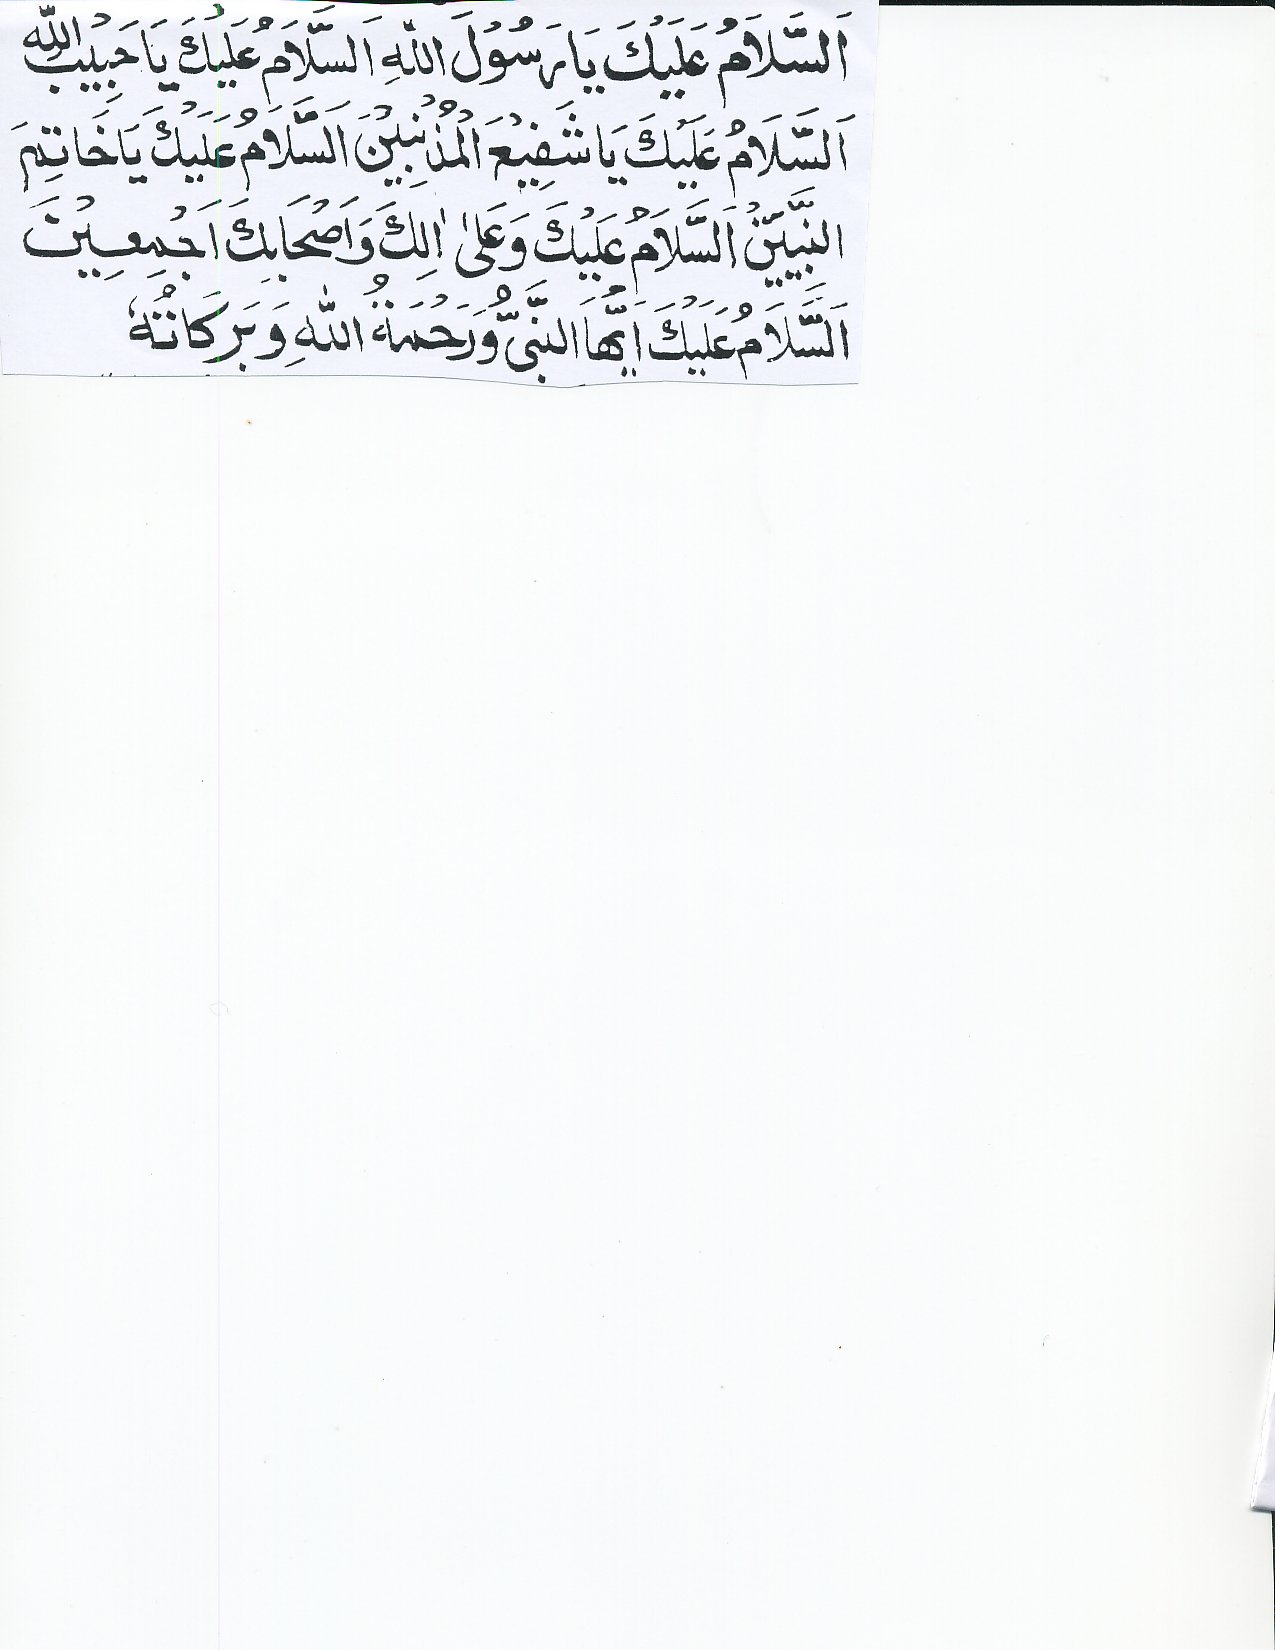 اَلسَّلَامُ عَلَيْكَ يَا رَسُوْلَ اللّٰهِ اَلسَّلَامُ عَلَيْكَ يَا حَبِيْبَ اللّٰهِ
اَلسَّلَامُ عَلَيْكَ يَا شَفِيْعَ الْمُذْنِبِيْنَ اَلسَّلَامُ عَلَيْكَ يَا خَاتِمَ
النَّبِيِّيْنَ اَلسَّلَامُ عَلَيْكَ وَعَلٰى اٰلِكَ وَاَصْحَابِكَ اَجْمَعِيْنَ
اَلسَّلَامُ عَلَيْكَ اَيُّهَا النَّبِيُّ وَرَحْمَةُ اللّٰهِ وَبَرَكَاتُهٗ